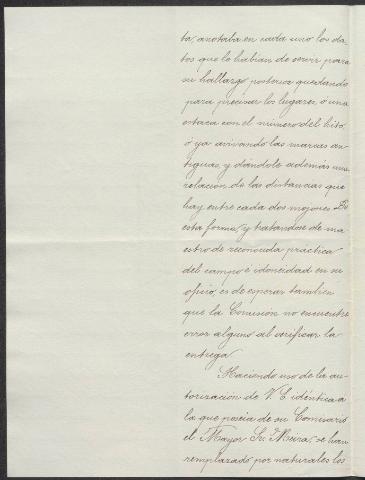 ta, anotaba en cada uno los da-
tos que le habian de servir para
su hallazgo posterior quedando
para precisar los lugares, ó una
estaca con el número del hito,
ó ya avivando las marcas an-
tiguas, y dándole además una
relación de las distancias que
hay entre cada dos mojones. De
esta forma, y tratandose de ma-
estro de reconocida práctica
del campo é idoneidad en su
oficio, es de esperar tambien
que la Comisión no encuentre
error alguno al verificar la
entrega.
Haciendo uso de la au-
torización de V E idéntica a
la que poseia de su Comisario
el Mayor Sr. Neira, se han
remplazado por naturales los